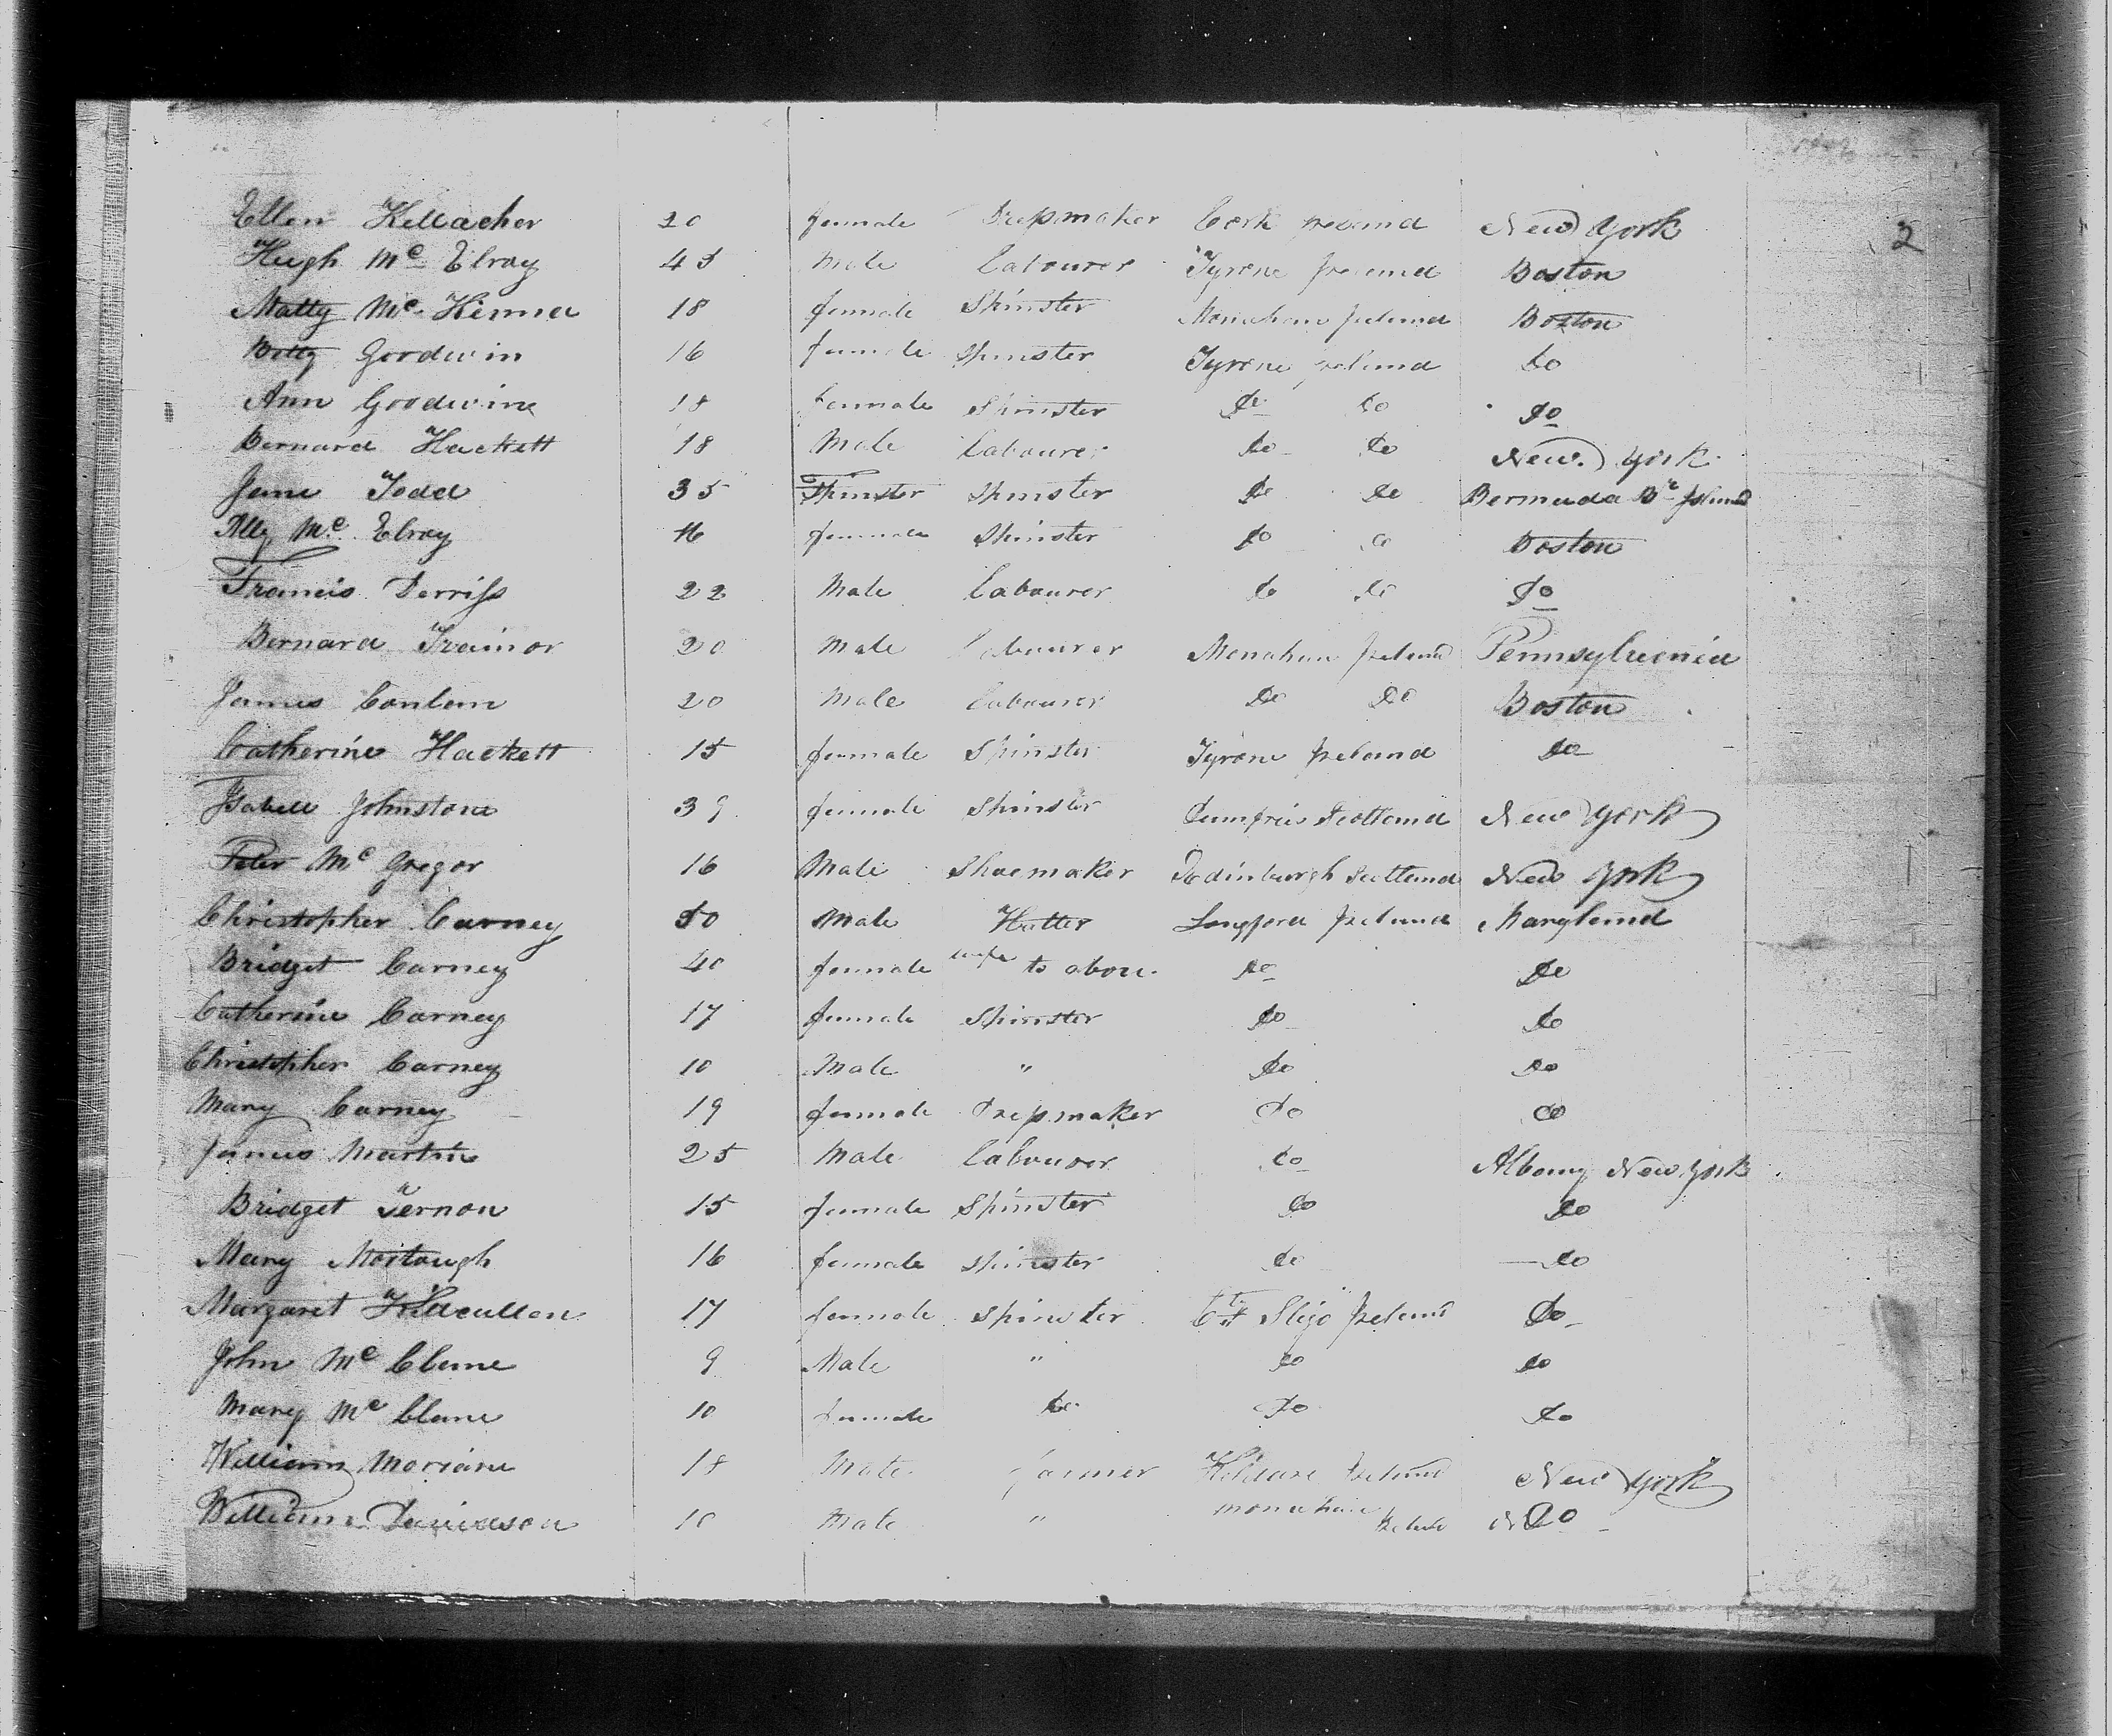 Ellen Kellacher 20 female Dressmaker Cork Ireland New York
2
Hugh Mc Elroy 45 Male Labourer Tyrone Ireland Boston
Matty Mc Kenna 18 female Spinster Monahan Ireland Boston
Betty Goodwin 16 female Spinster Tyrone Ireland Do
Ann Goodwine 18 female Spinster Do Do Do
Bernard Hackett 18 Male Labourer Do Do New York
Jane Todd 35 Spinster Spinster Do Do Bermuda Br Island
Ally Mc Elroy female Spinster Do Do Boston
Francis Derriss 22 Male Labourer Do Do Do
Bernard Trainor 20 Male Labourer Monahan Ireland Pennsylvania
James Conlan 20 Male Labourer Do Do Boston
Catherine Hackett 15 female Spinster Tyrone Ireland Do
Isabell Johnstone 39 female Spinster Dumfries Scotland New York
Peter Mc Gregor 16 Male Shoemaker Edinburgh Scotland New York
Christopher Carney 50 Male Hatter Longford Ireland Maryland
Bridget Carney 40 female wife to above Do Do
Catherine Carney 17 female Spinster Do Do
Christopher Carney 10 Male " Do Do
Mary Carney 19 female Dressmaker Do Do
James Martin 25 Male Labourer Do Albany New York
Bridget Ternon 15 female Spinster Do Do
Mary Mortough 16 female Spinster Do Do
Margaret Killcullen 17 female Spinster Cty Sligo Ireland Do
John Mc Clane 9 Male " Do Do
Mary Mc Clane 10 female Do Do Do
William Moriane 18 Male farmer Kildare Ireland New York
William Davidson 10 Male " Monahan Ireland Do